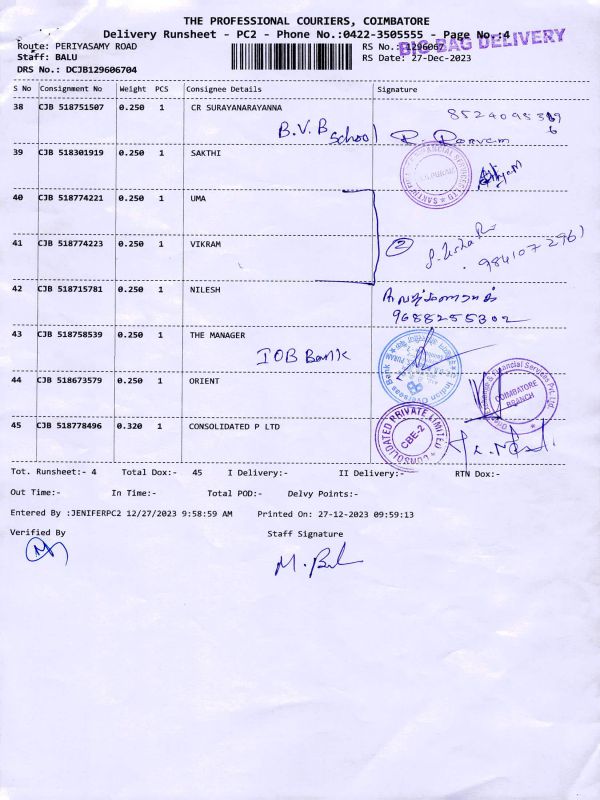 THE PROFESSIONAL COURIERS, COIMBATORE
Delivery Runsheet - PC2 - Phone No.:0422-3505555 - Page No.:4
Route: PERIYASAMY ROAD RS No.: 1296067
BIG BAG DELIVERY
Staff: BALU RS Date: 27-Dec-2023
DRS No.: DCJB129606704
S No Consignment No Weight PCS Consignee Details Signature
38 CJB 518751507 0.250 1 CR SURAYANARAYANNA
B.V.B School
39 CJB 518301919 0.250 1 SAKTHI
40 CJB 518774221 0.250 1 UMA
41 CJB 518774223 0.250 1 VIKRAM
2
42 CJB 518715781 0.250 1 NILESH
9688255302
43 CJB 518758539 0.250 1 THE MANAGER
IOB Bank
Indian Overseas Bank
44 CJB 518673579 0.250 1 ORIENT
Financial Services Pvt. Ltd.
COIMBATORE
BRANCH
45 CJB 518778496 0.320 1 CONSOLIDATED P LTD
CONSOLIDATED PRIVATE LIMITED
CBE-2
Tot. Runsheet:- 4 Total Dox:- 45 I Delivery:- II Delivery:- RTN Dox:-
Out Time:- In Time:- Total POD:- Delvy Points:-
Entered By :JENIFERPC2 12/27/2023 9:58:59 AM Printed On: 27-12-2023 09:59:13
Verified By Staff Signature